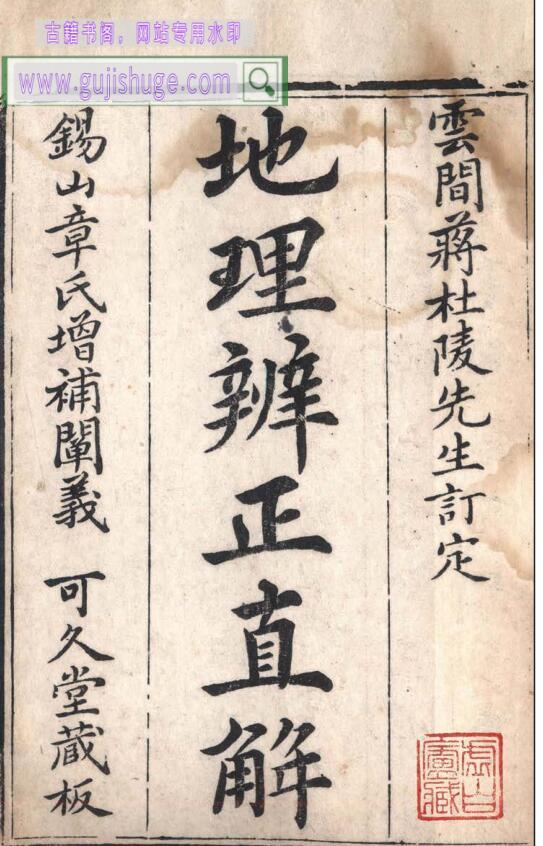 古籍书阁，网站专用水印
www.gujishuge.com
雲間蔣杜陵先生訂定
地理辨正直解
錫山章氏增補闡義 可久堂藏板